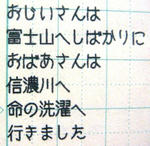 おじいさんは
富士山へしばかりに
おばあさんは
信濃川へ
命の洗濯へ
行きました